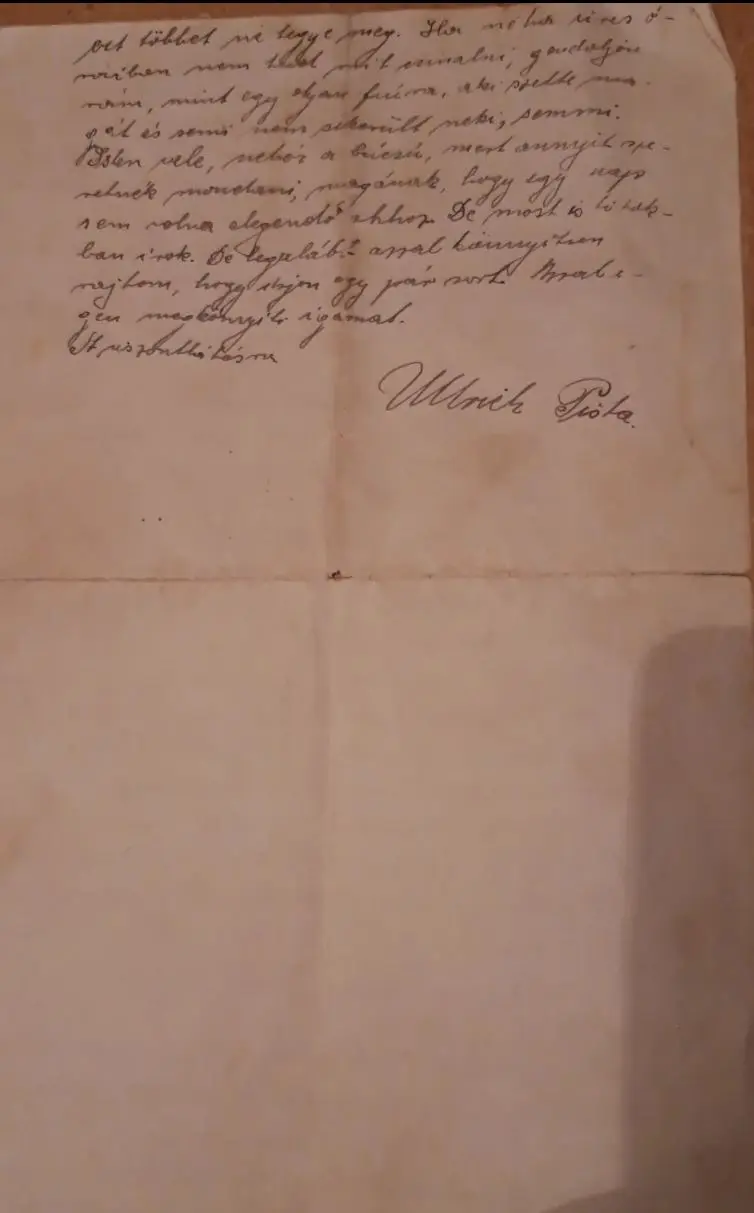 ezt többet ne tegye meg. Ha néha üres ó-
ráiban nem tud mit csinálni, gondoljon
rám, mint egy olyan fiúra, aki szerette ma-
gát és semmi nem sikerült neki, semmi.
Isten vele, nehéz a búcsú, mert annyit sze-
retnék mondani, magának, hogy egy nap
sem volna elegendő ahhoz. De most is titok-
ban írok. De legalább azzal könnyítsen
rajtam, hogy írjon egy pár sort. Azzal i-
gen megkönnyíti igámat.
A viszontlátásra
Ullrich Pista.